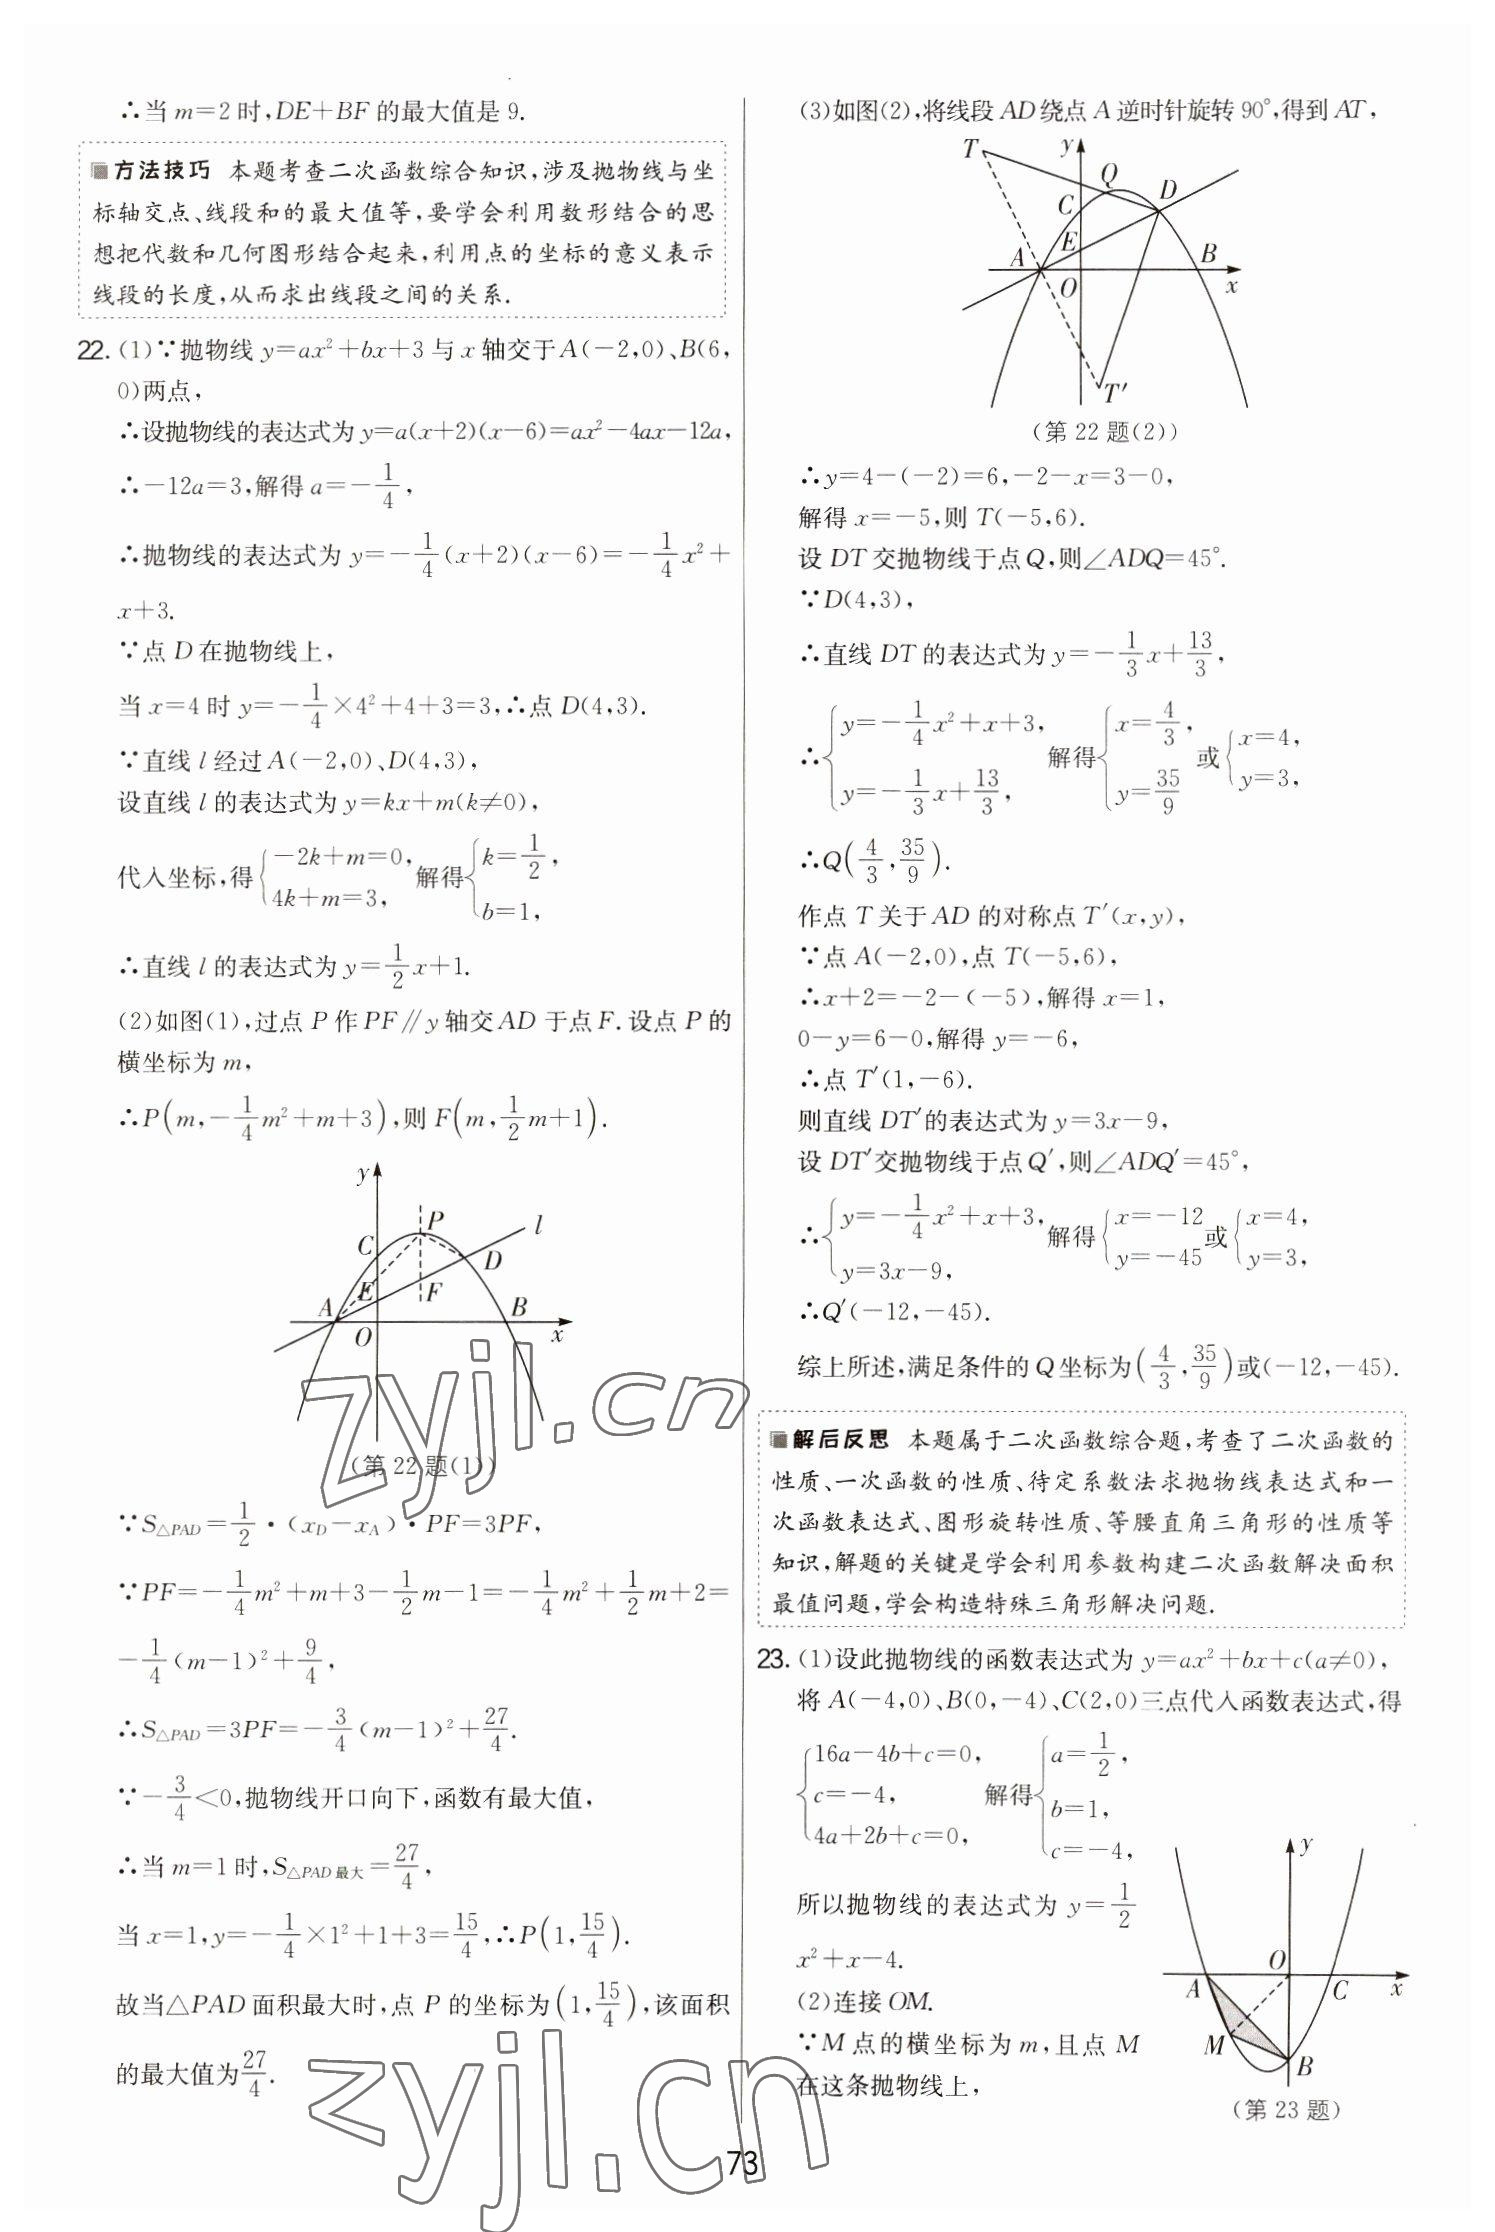 ∴当 m=2 时,DE+BF 的最大值是 9.
方法技巧 本题考查二次函数综合知识,涉及抛物线与坐
标轴交点、线段和的最大值等,要学会利用数形结合的思
想把代数和几何图形结合起来,利用点的坐标的意义表示
线段的长度,从而求出线段之间的关系.
22. (1)∵抛物线 y=ax²+bx+3 与 x 轴交于A(−2,0)、B(6,
0)两点,
∴设抛物线的表达式为 y=a(x+2)(x−6)=ax²−4ax−12a,
∴−12a=3,解得 a=−1/4,
∴抛物线的表达式为 y=−1/4(x+2)(x−6)=−1/4x²+
x+3.
∵点 D 在抛物线上,
当 x=4 时 y=−1/4×4²+4+3=3,∴点 D(4,3).
∵直线 l 经过A(−2,0)、D(4,3),
设直线 l 的表达式为 y=kx+m(k≠0),
代入坐标,得{−2k+m=0, 4k+m=3, 解得{k=1/2, b=1,
∴直线 l 的表达式为 y=1/2x+1.
(2)如图(1),过点 P 作 PF∥y 轴交 AD 于点 F. 设点 P 的
横坐标为 m,
∴P(m,−1/4m²+m+3),则 F(m,1/2m+1).
y
P
l
C
D
E
F
A
B
O
x
(第 22 题(1))
∵S△PAD=1/2·(xD−xA)·PF=3PF,
∵PF=−1/4m²+m+3−1/2m−1=−1/4m²+1/2m+2=
−1/4(m−1)²+9/4,
∴S△PAD=3PF=−3/4(m−1)²+27/4.
∵−3/4<0,抛物线开口向下,函数有最大值,
∴当 m=1 时,S△PAD最大=27/4,
当 x=1,y=−1/4×1²+1+3=15/4,∴P(1,15/4).
故当△PAD 面积最大时,点 P 的坐标为(1,15/4),该面积
的最大值为27/4.
(3)如图(2),将线段 AD 绕点 A 逆时针旋转 90°,得到 AT,
T
y
Q
D
C
E
A
B
O
x
T′
(第 22 题(2))
∴y=4−(−2)=6,−2−x=3−0,
解得 x=−5,则 T(−5,6).
设 DT 交抛物线于点 Q,则∠ADQ=45°.
∵D(4,3),
∴直线 DT 的表达式为 y=−1/3x+13/3,
∴{y=−1/4x²+x+3, y=−1/3x+13/3, 解得{x=4/3, y=35/9 或{x=4, y=3,
∴Q(4/3,35/9).
作点 T 关于 AD 的对称点 T′(x,y),
∵点 A(−2,0),点 T(−5,6),
∴x+2=−2−(−5),解得 x=1,
0−y=6−0,解得 y=−6,
∴点 T′(1,−6).
则直线 DT′的表达式为 y=3x−9,
设 DT′交抛物线于点Q′,则∠ADQ′=45°,
∴{y=−1/4x²+x+3, y=3x−9, 解得{x=−12 y=−45 或{x=4, y=3,
∴Q′(−12,−45).
综上所述,满足条件的 Q 坐标为(4/3,35/9)或(−12,−45).
解后反思 本题属于二次函数综合题,考查了二次函数的
性质、一次函数的性质、待定系数法求抛物线表达式和一
次函数表达式、图形旋转性质、等腰直角三角形的性质等
知识,解题的关键是学会利用参数构建二次函数解决面积
最值问题,学会构造特殊三角形解决问题.
23. (1)设此抛物线的函数表达式为 y=ax²+bx+c(a≠0),
将 A(−4,0)、B(0,−4)、C(2,0)三点代入函数表达式,得
{16a−4b+c=0, c=−4, 4a+2b+c=0, 解得{a=1/2, b=1, c=−4,
所以抛物线的表达式为 y=1/2
x²+x−4.
(2)连接 OM.
∵M 点的横坐标为 m,且点 M
在这条抛物线上,
y
O
A
C
x
M
B
(第 23 题)
73
zyjl.cn
zyjl.cn